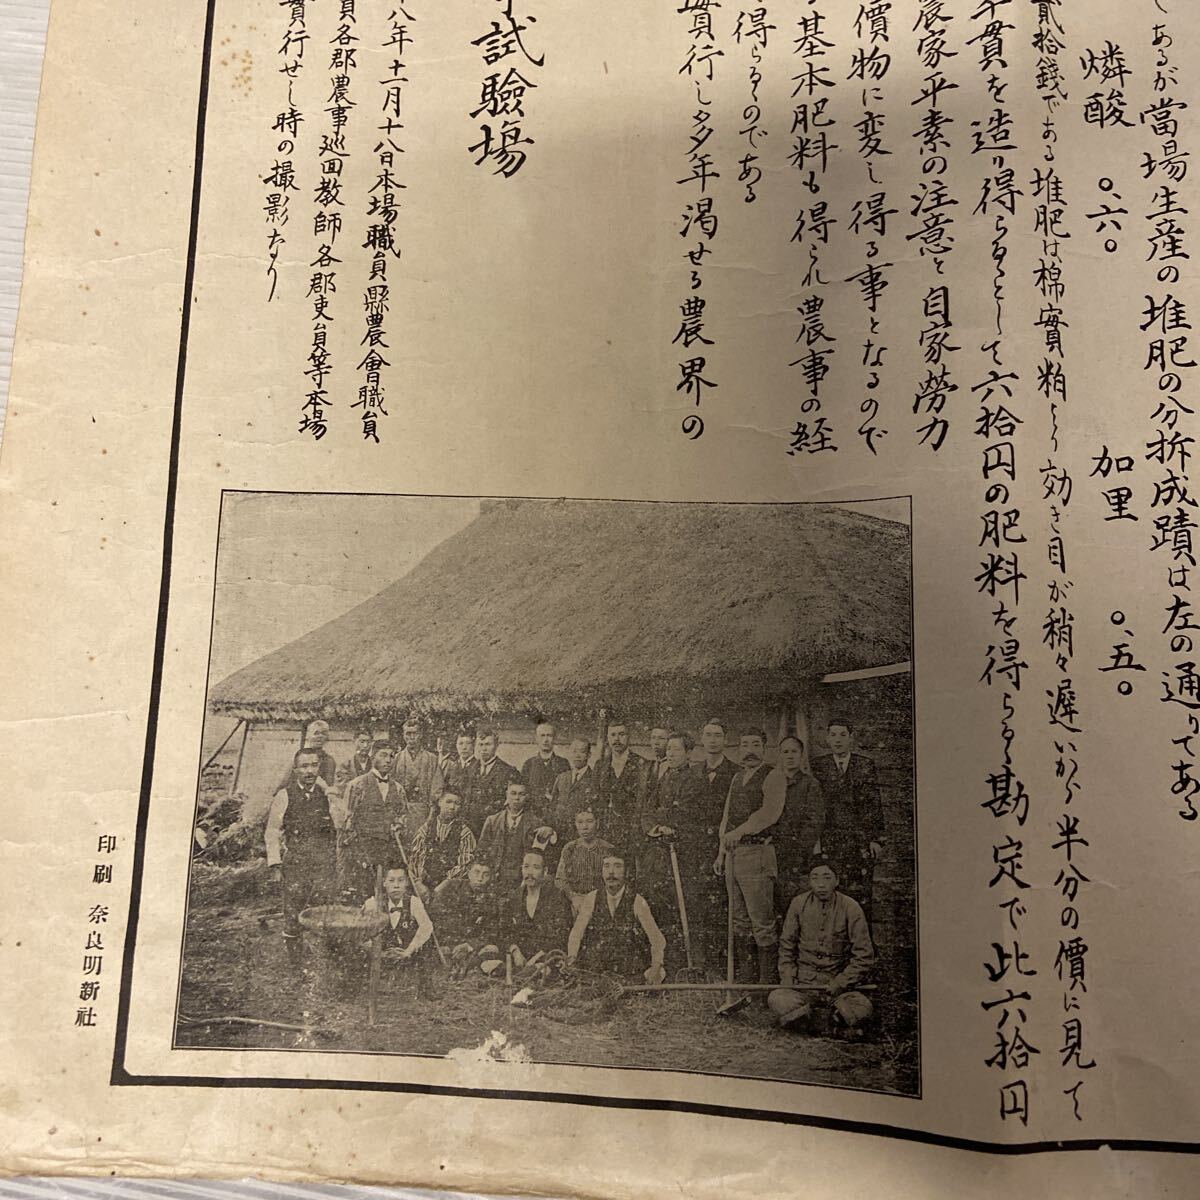 であるが當場生産の堆肥の分拆成蹟は左の通りである
燐酸 〇、六〇 加里 〇、五〇
貳拾錢である堆肥は棉實粕より効き目が稍々遲いから半分の價に見て
貫を造り得らるゝとして六拾円の肥料を得らるゝ勘定で此六拾円
農家平素の注意と自家勞力
價物に変し得る事となるので
基本肥料も得られ農事の経
得らるゝのである
實行し多年渇せる農界の
試驗場
八年十一月十八日本場職員縣農會職員
員各郡農事巡回教師各郡吏員等本場
實行せし時の撮影なり
印刷 奈良明新社